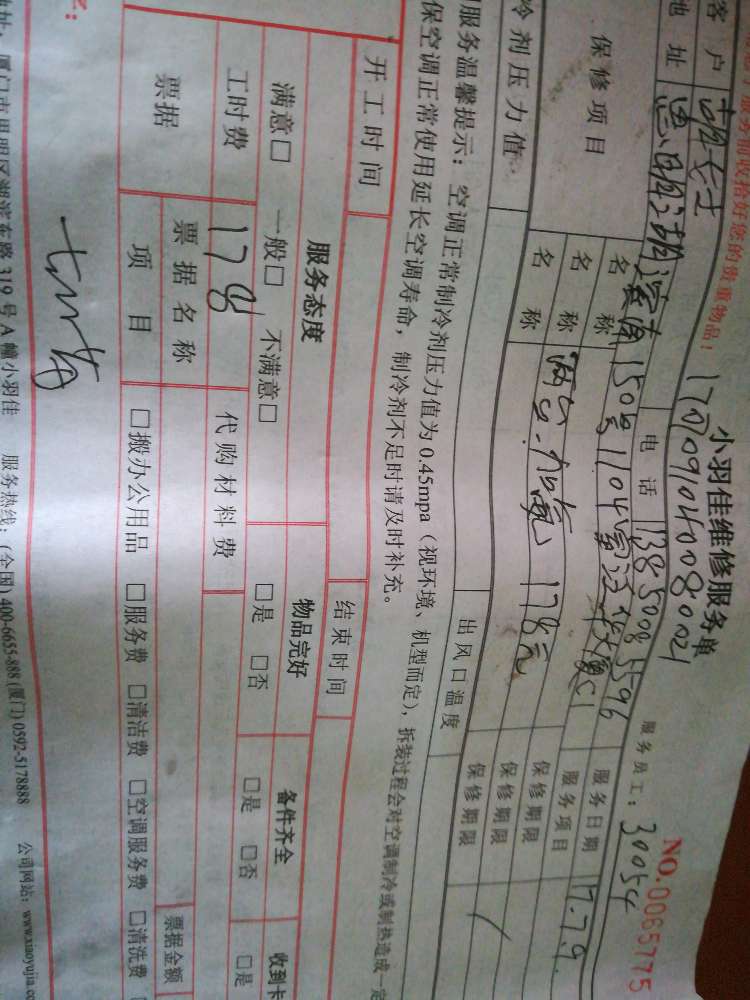 服务前收拾好您的贵重物品！
小羽佳维修服务单
NO.0065775
1707091040080021
服务员工：30054
客户 胡女士 电话 13850083596 服务日期 17.7.9
地址 思明湖滨南150号1104室 服务项目
保修项目 名称 保修期限
名称 两台加氟 178元 保修期限
名称 保修期限
冷剂压力值 出风口温度
服务温馨提示：空调正常制冷剂压力值为 0.45mpa（视环境、机型而定），拆装过程会对空调制冷或制热造成一定
保空调正常使用延长空调寿命，制冷剂不足时请及时补充。
开工时间 结束时间
服务态度 物品完好 备件齐全 收到卡
满意□ 一般□ 不满意□ □是 □否 □是 □否 □是
工时费 178 代购材料费
票据 票据名称 票据金额
项目 □搬办公用品 □服务费 □清洁费 □空调服务费 □清洗费
厦门市思明区湖滨东路 319 号 A 幢小羽佳 服务热线：(全国) 400-6655-888 (厦门) 0592-5178888 公司网站：www.xiaoyujia.co